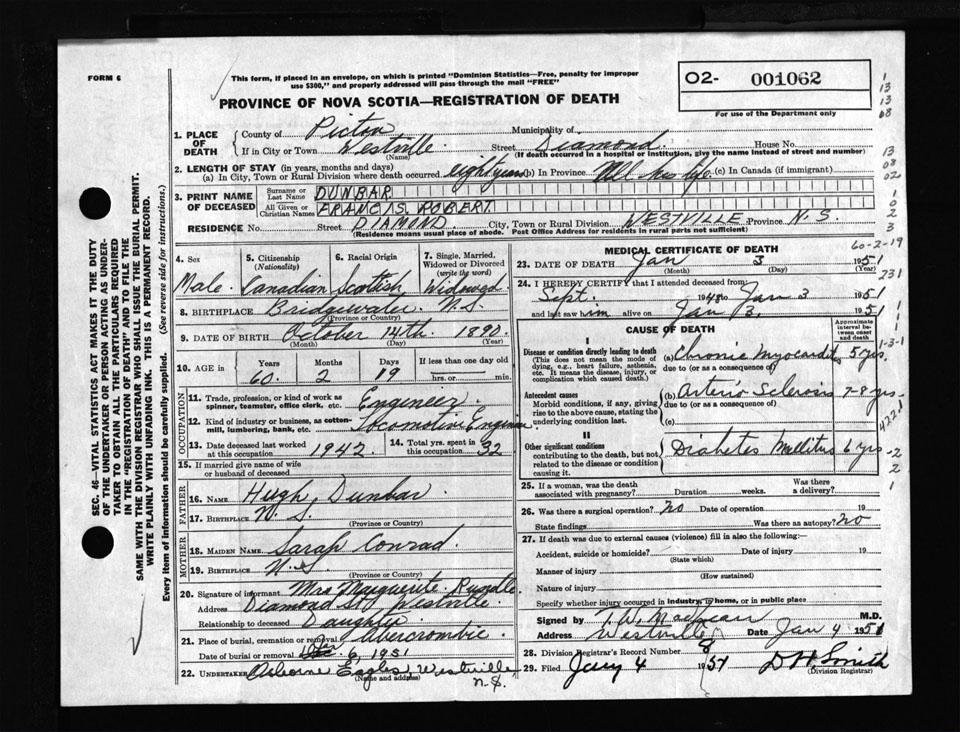 FORM 6
This form, if placed in an envelope, on which is printed "Dominion Statistics—Free, penalty for improper
use $300," and properly addressed will pass through the mail "FREE"
PROVINCE OF NOVA SCOTIA—REGISTRATION OF DEATH
O2- 001062
For use of the Department only
1. PLACE OF DEATH
County of Pictou Municipality of
If in City or Town Westville Street Diamond House No.
(Name) (If death occurred in a hospital or institution, give the name instead of street and number)
2. LENGTH OF STAY (in years, months and days)
(a) In City, Town or Rural Division where death occurred eight years (b) In Province All his life (c) In Canada (if immigrant)
3. PRINT NAME OF DECEASED
Surname or Last Name DUNBAR
All Given or Christian Names FRANCIS ROBERT
RESIDENCE No. Street DIAMOND City, Town or Rural Division WESTVILLE Province N.S.
(Residence means usual place of abode. Post Office Address for residents in rural parts not sufficient)
4. Sex Male
5. Citizenship (Nationality) Canadian
6. Racial Origin Scottish
7. Single, Married, Widowed or Divorced (write the word) Widowed
8. BIRTHPLACE Bridgewater N.S.
(Province or Country)
9. DATE OF BIRTH October 14th 1890
(Month) (Day) (Year)
10. AGE Years 60 Months 2 Days 19 If less than one day old hrs. or min.
OCCUPATION
11. Trade, profession, or kind of work as spinner, teamster, office clerk, etc. Engineer
12. Kind of industry or business, as cotton-mill, lumbering, bank, etc. Locomotive Engineer
13. Date deceased last worked at this occupation 1942
14. Total yrs. spent in this occupation 32
15. If married give name of wife or husband of deceased
FATHER
16. NAME Hugh Dunbar
17. BIRTHPLACE N.S.
(Province or Country)
MOTHER
18. MAIDEN NAME Sarah Conrad
19. BIRTHPLACE N.S.
(Province or Country)
20. Signature of informant Mrs Marguerite
Address Diamond St, Westville
Relationship to deceased Daughter
21. Place of burial, cremation or removal Abercrombie
Date of burial or removal 6, 1951
22. UNDERTAKER Osborne Eagles, Westville N.S.
(Name and address)
MEDICAL CERTIFICATE OF DEATH
23. DATE OF DEATH Jan 3 1951
(Month) (Day) (Year)
24. I HEREBY CERTIFY that I attended deceased from:
Sept. 1948 to Jan 3 1951
and last saw him alive on Jan 3. 1951
CAUSE OF DEATH
Approximate interval between onset and death
I
Disease or condition directly leading to death (a) Chronic Myocarditis 5 yrs
(This does not mean the mode of dying, e.g., heart failure, asthenia, etc. It means the disease, injury, or complication which caused death.)
due to (or as a consequence of)
Antecedent causes (b) Arterio Sclerosis 7-8 yrs
Morbid conditions, if any, giving rise to the above cause, stating the underlying condition last.
due to (or as a consequence of)
(c)
II
Other significant conditions Diabetes Mellitus 6 yrs
contributing to the death, but not related to the disease or condition causing it.
25. If a woman, was the death associated with pregnancy? Duration weeks. Was there a delivery?
26. Was there a surgical operation? no Date of operation 19
State findings Was there an autopsy? no
27. If death was due to external causes (violence) fill in also the following:
Accident, suicide or homicide? Date of injury 19
(State which)
Manner of injury
(How sustained)
Nature of injury
Specify whether injury occurred in industry, in home, or in public place
Signed by M.D.
Address Westville Date Jan 4 1951
28. Division Registrar's Record Number 8
29. Filed Jany 4 1951 D H Smith
(Division Registrar)
SEC. 46—VITAL STATISTICS ACT MAKES IT THE DUTY
OF THE UNDERTAKER OR PERSON ACTING AS UNDER-
TAKER TO OBTAIN ALL THE PARTICULARS REQUIRED
IN THE "REGISTRATION OF DEATH" AND TO FILE THE
SAME WITH THE DIVISION REGISTRAR WHO SHALL ISSUE THE BURIAL PERMIT.
WRITE PLAINLY WITH UNFADING INK. THIS IS A PERMANENT RECORD.
Every item of information should be carefully supplied. (See reverse side for instructions.)
1
13
13
08
13
08
02
1
0
2
3
60-2-19
231
1
1
1-3-1
4221
-2
2
1